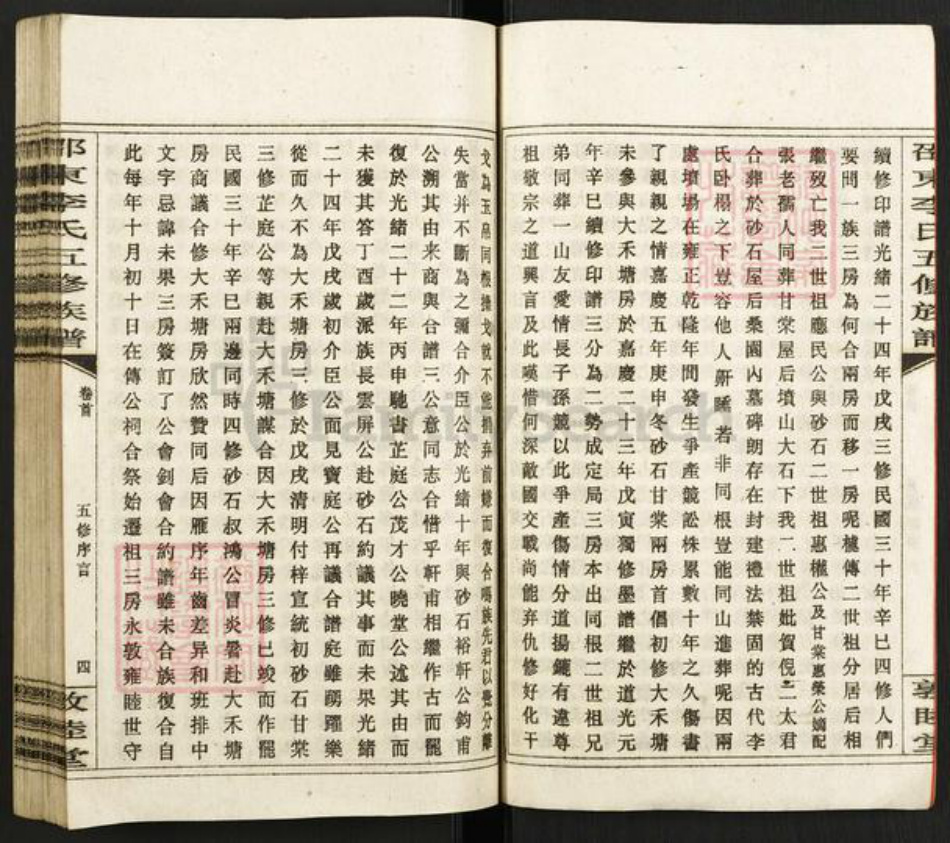 邵東李氏五修族譜
敦睦堂
續修印譜光緒二十四年戊戌三修民國三十年辛巳四修人們
要問一族三房為何合兩房而移一房呢槐傳二世祖分居后相
繼歿亡我二世祖應民公與砂石二世祖惠權公及甘棠惠榮公嫡配
張老孺人同葬甘棠屋后墳山大石下我二世祖妣賀倪二太君
合葬於砂石屋后桑園內墓碑朗存在封建禮法禁固的古代李
氏臥榻之下豈容他人鼾睡若非同根豈能同山進葬呢因兩
處墳塲在雍正乾隆年間發生爭產競訟株累數十年之久傷害
了親親之情嘉慶五年庚申冬砂石甘棠兩房首倡初修大禾塘
未參與大禾塘房於嘉慶二十三年戊寅獨修墨譜繼於道光元
年辛巳續修印譜三分為二勢成定局三房本出同根二世祖兄
弟同葬一山友愛情長子孫競以此爭產傷情分道揚鑣有違尊
祖敬宗之道興言及此嘆惜何深敵國交戰尚能弃仇修好化干
戈為玉帛同根操戈就不能捐弃前嫌而復合嗎族先君以覺分離
失當并不斷為之彌合介臣公於光緒十年與砂石裕軒公鈞甫
公溯其由来商與合譜三公意同志合惜乎軒甫相繼作古而罷
復於光緒二十二年丙申馳書芷庭公茂才公曉堂公述其由而
未獲其答丁酉歲派族長雲屏公赴砂石約議其事而未果光緒
二十四年戊戌歲初介臣公面見寶庭公再議合譜庭雖踴躍樂
從而久不為大禾塘房三修於戊戌清明付梓宣統初砂石甘棠
三修芷庭公等親赴大禾塘謀合因大禾塘房三修已竣而作罷
民國三十年辛巳兩邊同時四修砂石叔鴻公冒炎暑赴大禾塘
房商議合修大禾塘房欣然贊同后因雁序年齒差异和班排中
文字忌諱未果三房簽訂了公會到會合約譜雖未合族復合自
此每年十月初十日在傳公祠合祭始遷祖三房永敦雍睦世守
邵東李氏五修族譜
卷首
五修序言
四
敦睦堂